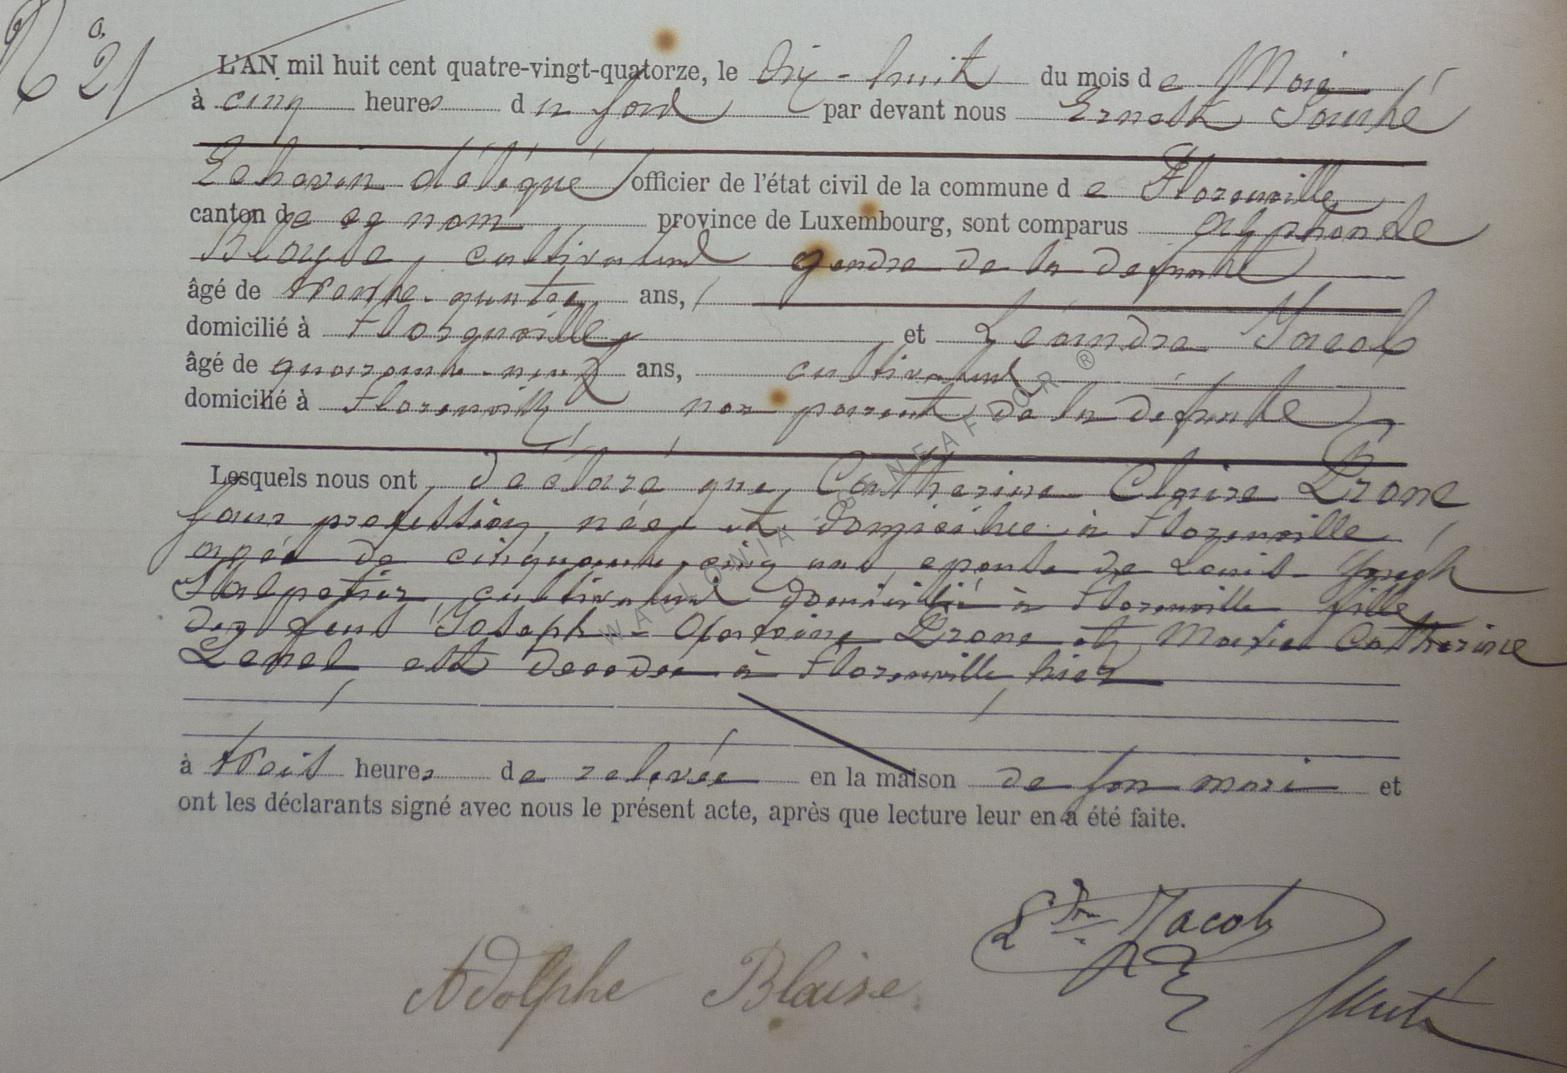 N° 21
L'AN mil huit cent quatre-vingt-quatorze, le dix-huit du mois de Mai
à cinq heures du soir par devant nous Ernest
Echevin délégué officier de l'état civil de la commune de Florenville
canton de ce nom province de Luxembourg, sont comparus Alphonse
Blaise, cultivateur gendre de la defunte
âgé de trente-quatre ans,
domicilié à Florenville et Léandre Jacob
âgé de quarante-neuf ans, cultivateur
domicilié à Florenville non parent de la défunte
Lesquels nous ont déclaré que Catherine Claire Drone
sans profession, née et domiciliée à Florenville
agée de cinquante-cinq ans, epouse de Louis-Joseph
cultivateur domicilié à Florenville fille
des feus Joseph-Antoine Drone et Marie Catherine
est decedee à Florenville hier
à trois heures de relevée en la maison de son mari et
ont les déclarants signé avec nous le présent acte, après que lecture leur en a été faite.
Jacob
Adolphe Blaise
WALLONIA BONEAFOUR ®